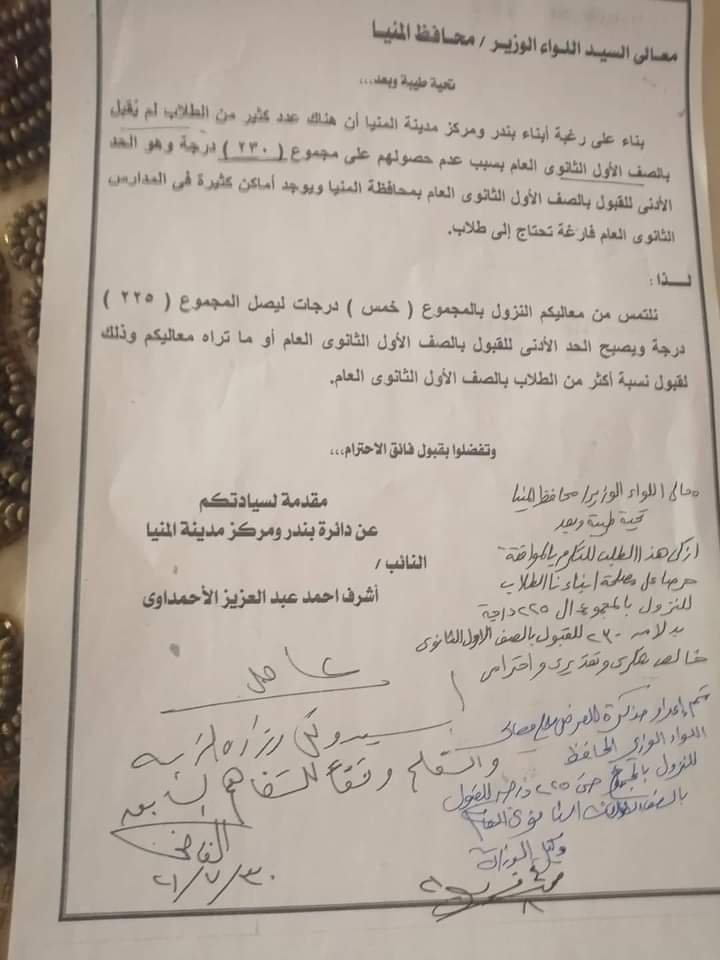 معالى السيد اللواء الوزير / محافظ المنيا
تحية طيبة وبعد...
بناء على رغبة أبناء بندر ومركز مدينة المنيا أن هناك عدد كثير من الطلاب لم يُقبل
بالصف الأول الثانوى العام بسبب عدم حصولهم على مجموع ( ٢٣٠ ) درجة وهو الحد
الأدنى للقبول بالصف الأول الثانوى العام بمحافظة المنيا ويوجد أماكن كثيرة فى المدارس
الثانوى العام فارغة تحتاج إلى طلاب.
لــذا :
نلتمس من معاليكم النزول بالمجموع ( خمس ) درجات ليصل المجموع ( ٢٢٥ )
درجة ويصبح الحد الأدنى للقبول بالصف الأول الثانوى العام أو ما تراه معاليكم وذلك
لقبول نسبة أكثر من الطلاب بالصف الأول الثانوى العام.
وتفضلوا بقبول فائق الاحترام،،،
مقدمة لسيادتكم
عن دائرة بندر ومركز مدينة المنيا
النائب /
أشرف احمد عبد العزيز الأحمداوى
معالى اللواء الوزير/ محافظ المنيا
تحية طيبة وبعد
ازكى هذا الطلب للتكرم بالموافقة
حرصا على مصلحة ابناءنا الطلاب
للنزول بالمجموع الى ٢٢٥ درجة
بدلا من ٢٣٠ للقبول بالصف الاول الثانوى
خالص شكرى وتقديرى واحترامى
عاجل
السيد وكيل وزارة التربية
والتعليم وفقاً للتفاهم السابق
القاضى
٢١/٧/٣٠
تم إعداد مذكرة للعرض على معالى
اللواء الوزير المحافظ
للنزول بالمجموع حتى ٢٢٥ درجة للقبول
بالصف الأول الثانوى العام
وكيل الوزارة